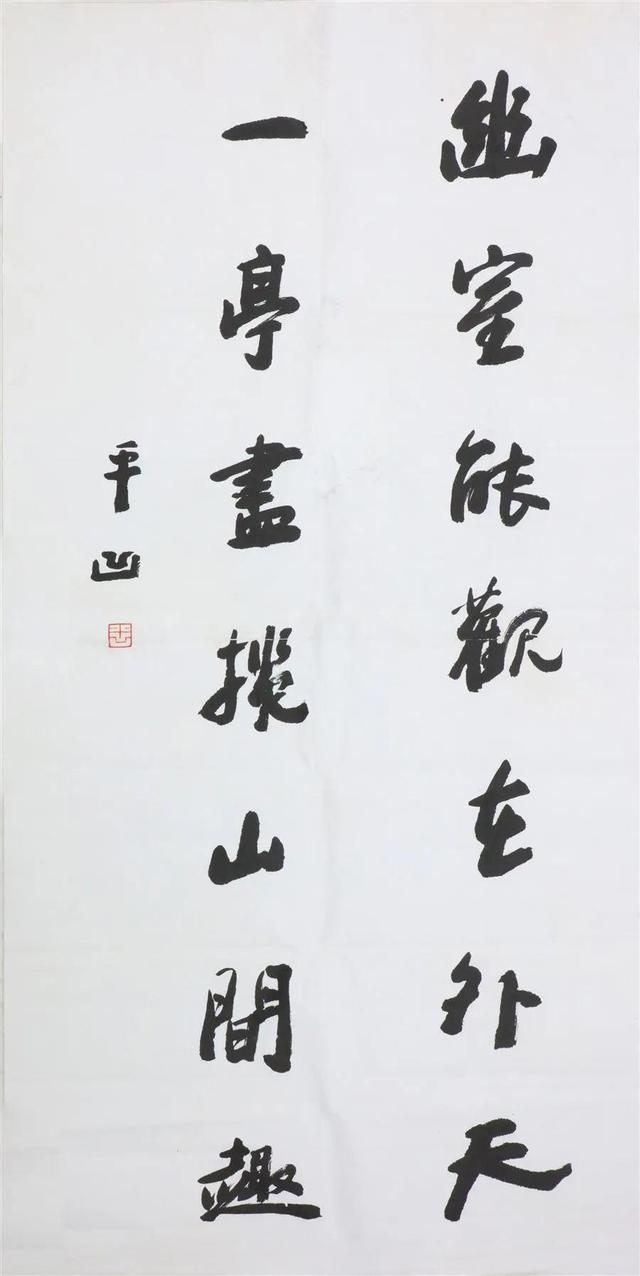 幽室能觀在外天
一亭盡攬山間趣
平凹